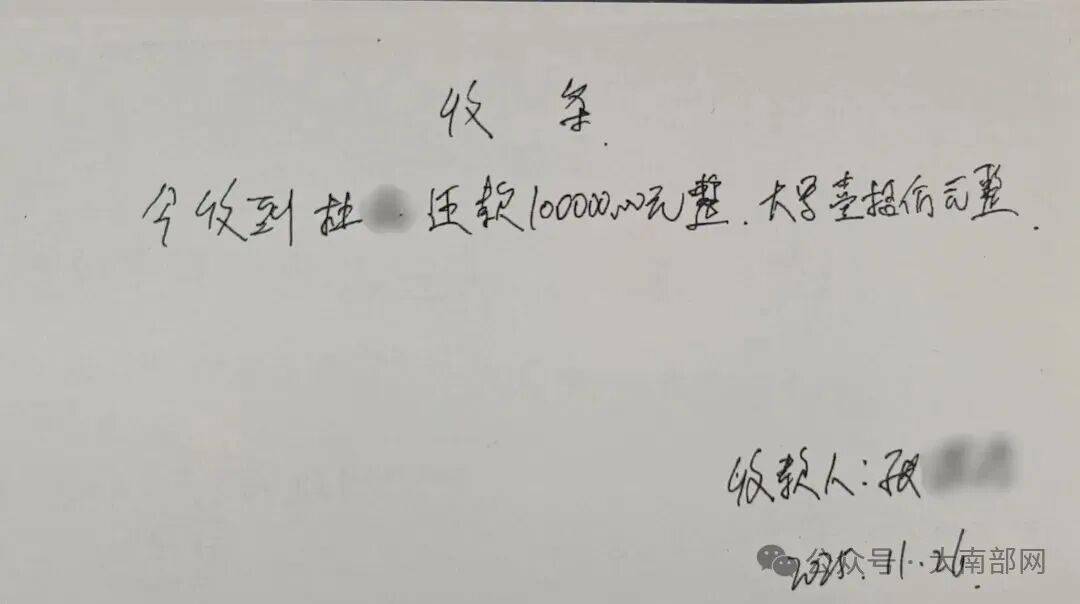 收 条
今收到杜 还款100000.00元整.大写壹拾 元整.
收款人:
2025.11.26
公众号·大南部网